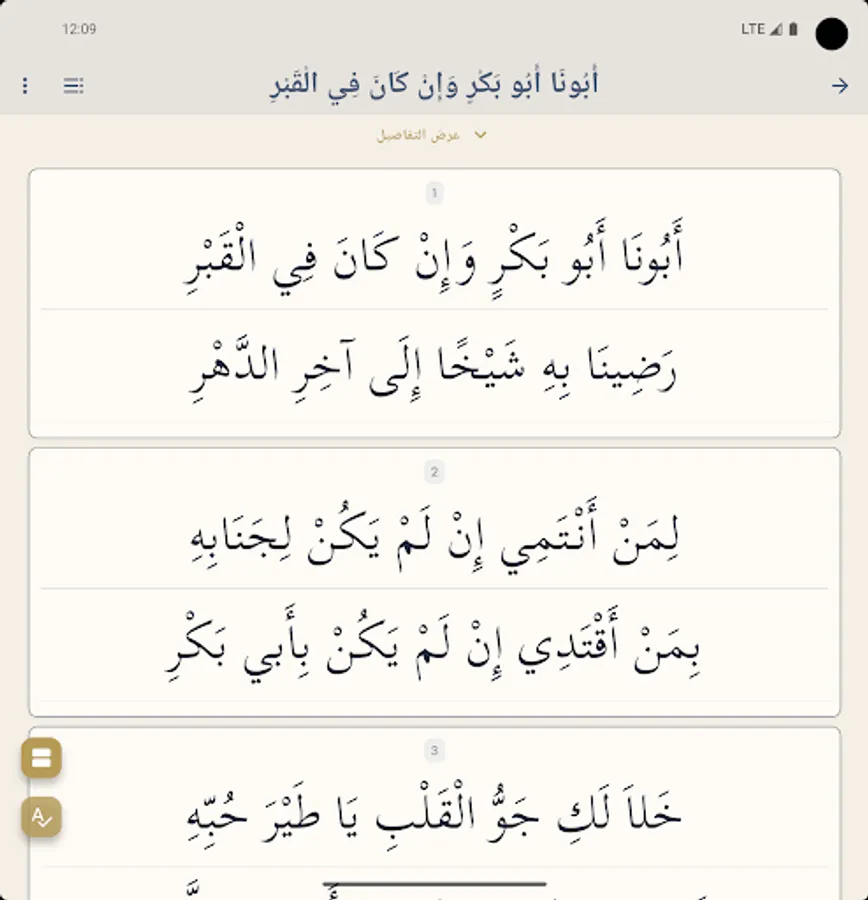 12:09
LTE
أَبُونَا أَبُو بَكْرٍ وَإِنْ كَانَ فِي الْقَبْرِ
عرض التفاصيل
1
أَبُونَا أَبُو بَكْرٍ وَإِنْ كَانَ فِي الْقَبْرِ
رَضِينَا بِهِ شَيْخًا إِلَى آخِرِ الدَّهْرِ
2
لِمَنْ أَنْتَمِي إِنْ لَمْ يَكُنْ لِجَنَابِهِ
بِمَنْ أَقْتَدِي إِنْ لَمْ يَكُنْ بِأَبي بَكْرِ
3
خَلاَ لَكِ جَوُّ الْقَلْبِ يَا طَيْرَ حُبِّهِ